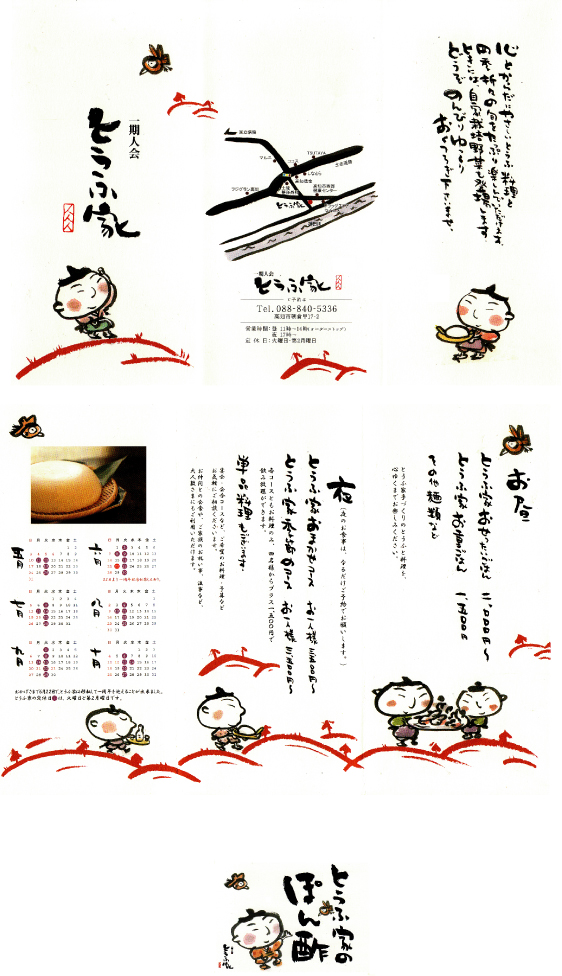 心とからだにやさしいとうふ料理と
四季折々の旬をたっぷり楽しんでいただけます。
ときには、自家栽培野菜も登場します。
どうぞ のんびり ゆっくり
おくつろぎ下さいませ。
一期人会
とうふ家
TSUTAYA
マルニ
とうふ家
一期人会
とうふ家
ご予約は
Tel.088-840-5336
高知市朝倉甲17-2
営業時間：昼 11時〜14時(オーダーストップ)
夜 17時〜
定休日：火曜日・第2月曜日
お昼
とうふ家手づくりのとうふと料理を、
心ゆくまでお楽しみください。
とうふ家おぜんたいごはん 二、〇〇〇円〜
とうふ家お重ごはん 一、五〇〇円
その他麺類など
夜
(夜のお食事は、なるだけご予約でお願いします。)
とうふ家おまかせコース お一人様 三、五〇〇円〜
とうふ家季節のコース お一人様 三、五〇〇円〜
各コースともお料理のみ。四名様からプラス一、五〇〇円で
飲み放題ができます。
単品料理もございます。
宴会・会合コースなど、ご希望のお料理・予算など
お気軽にご相談ください。
お仲間との会食や、ご家族のお祝い事、法事など、
大人数さまにもご利用いただけます。
五月
六月
七月
八月
九月
十月
おかげさまで6月22日で、とうふ家は移転して一周年を迎えることが出来ました。
とうふ家の定休日は、火曜日と第2月曜日です。
とうふ家の
ぽん酢
とうふ家